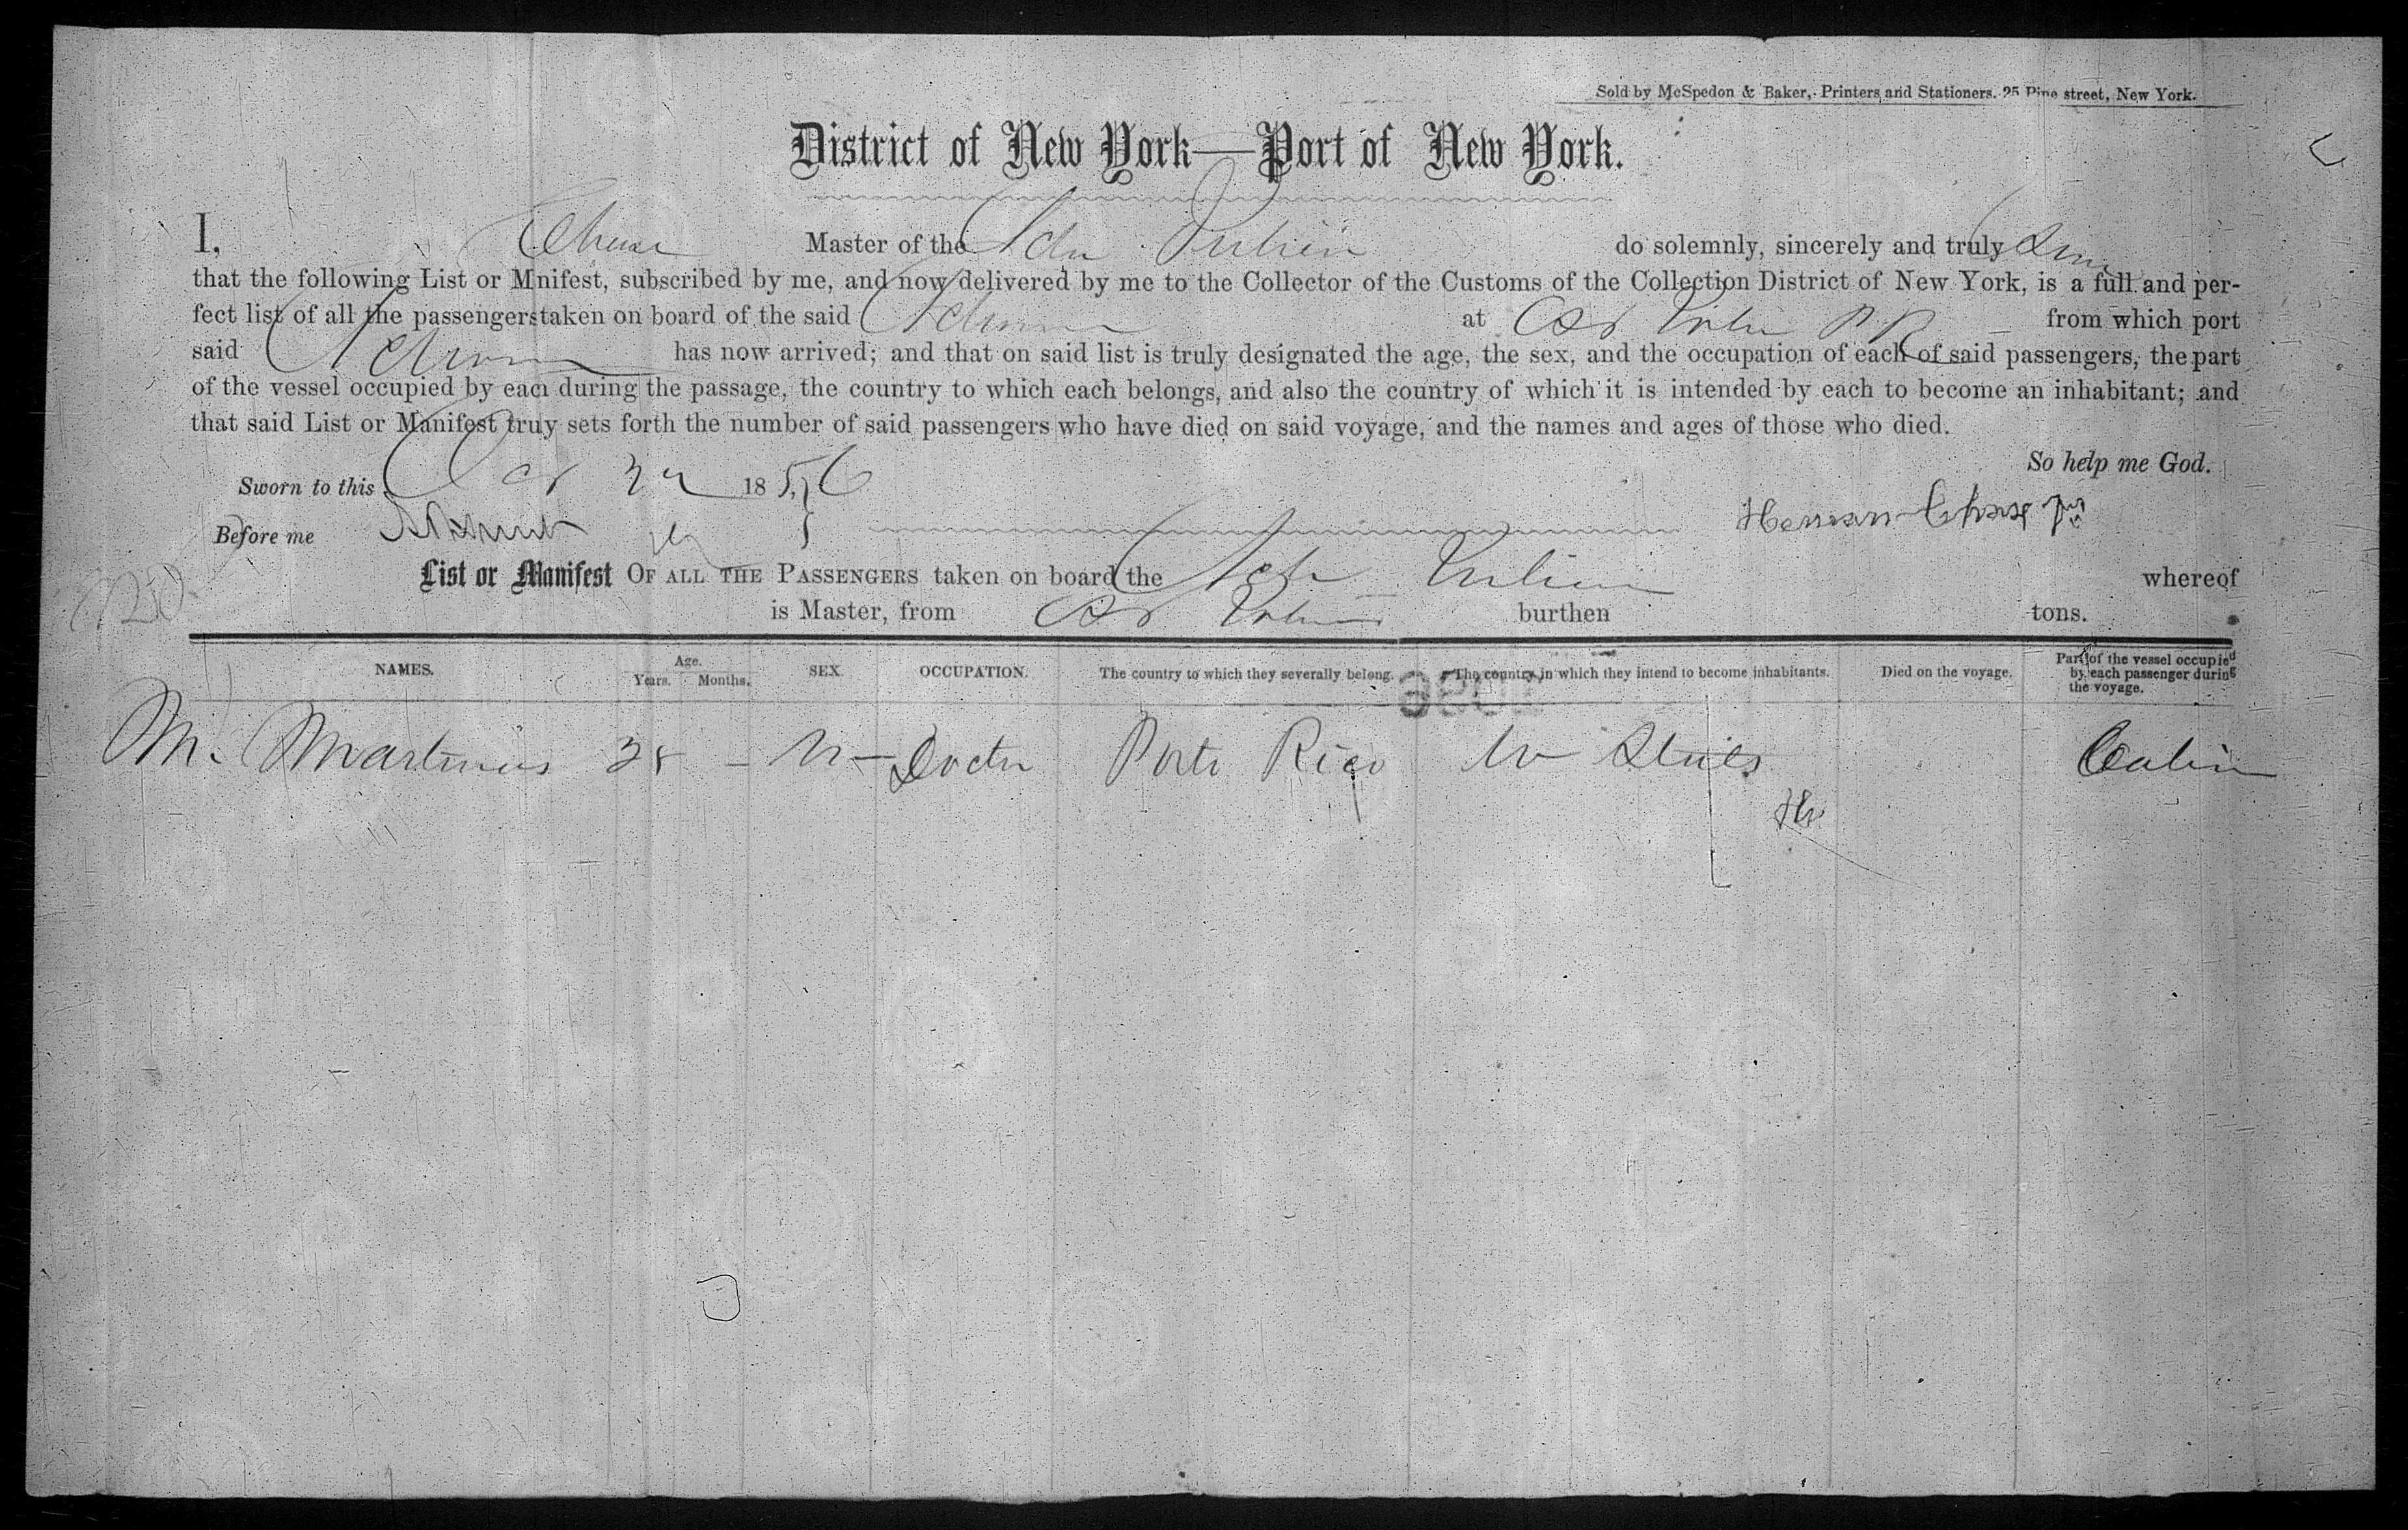 Sold by McSpedon & Baker, Printers and Stationers. 25 Pine street, New York.
District of New York—Port of New York.
I, Chase Master of the Schr Julia do solemnly, sincerely and truly
that the following List or Mnifest, subscribed by me, and now delivered by me to the Collector of the Customs of the Collection District of New York, is a full and per-
fect list of all the passengerstaken on board of the said Schooner at P R from which port
said Schooner has now arrived; and that on said list is truly designated the age, the sex, and the occupation of each of said passengers, the part
of the vessel occupied by each during the passage, the country to which each belongs, and also the country of which it is intended by each to become an inhabitant; and
that said List or Manifest truy sets forth the number of said passengers who have died on said voyage, and the names and ages of those who died.
So help me God.
Sworn to this Oct 1856
Before me Herman Chase Jr
List or Manifest OF ALL THE PASSENGERS taken on board the Schr whereof
is Master, from burthen tons.
NAMES. Age. Years. Months. SEX. OCCUPATION. The country to which they severally belong. The country in which they intend to become inhabitants. Died on the voyage. Part of the vessel occupied by each passenger during the voyage.
M. Martinus 38 – M – Doctor Porto Rico U States Cabin